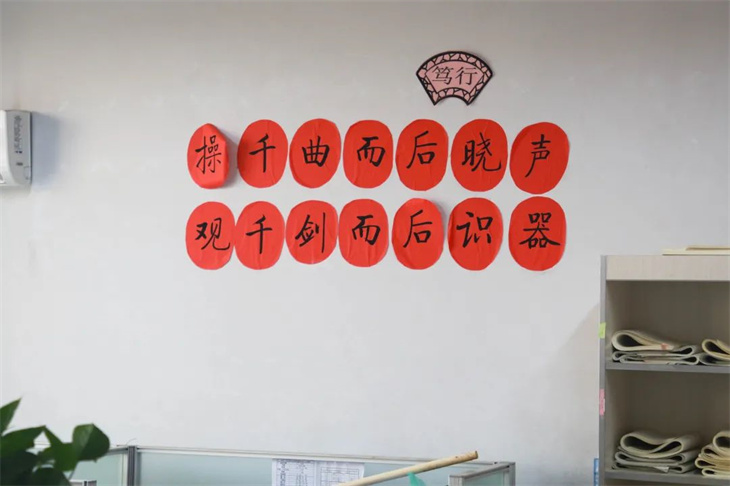 笃行
操千曲而后晓声
观千剑而后识器